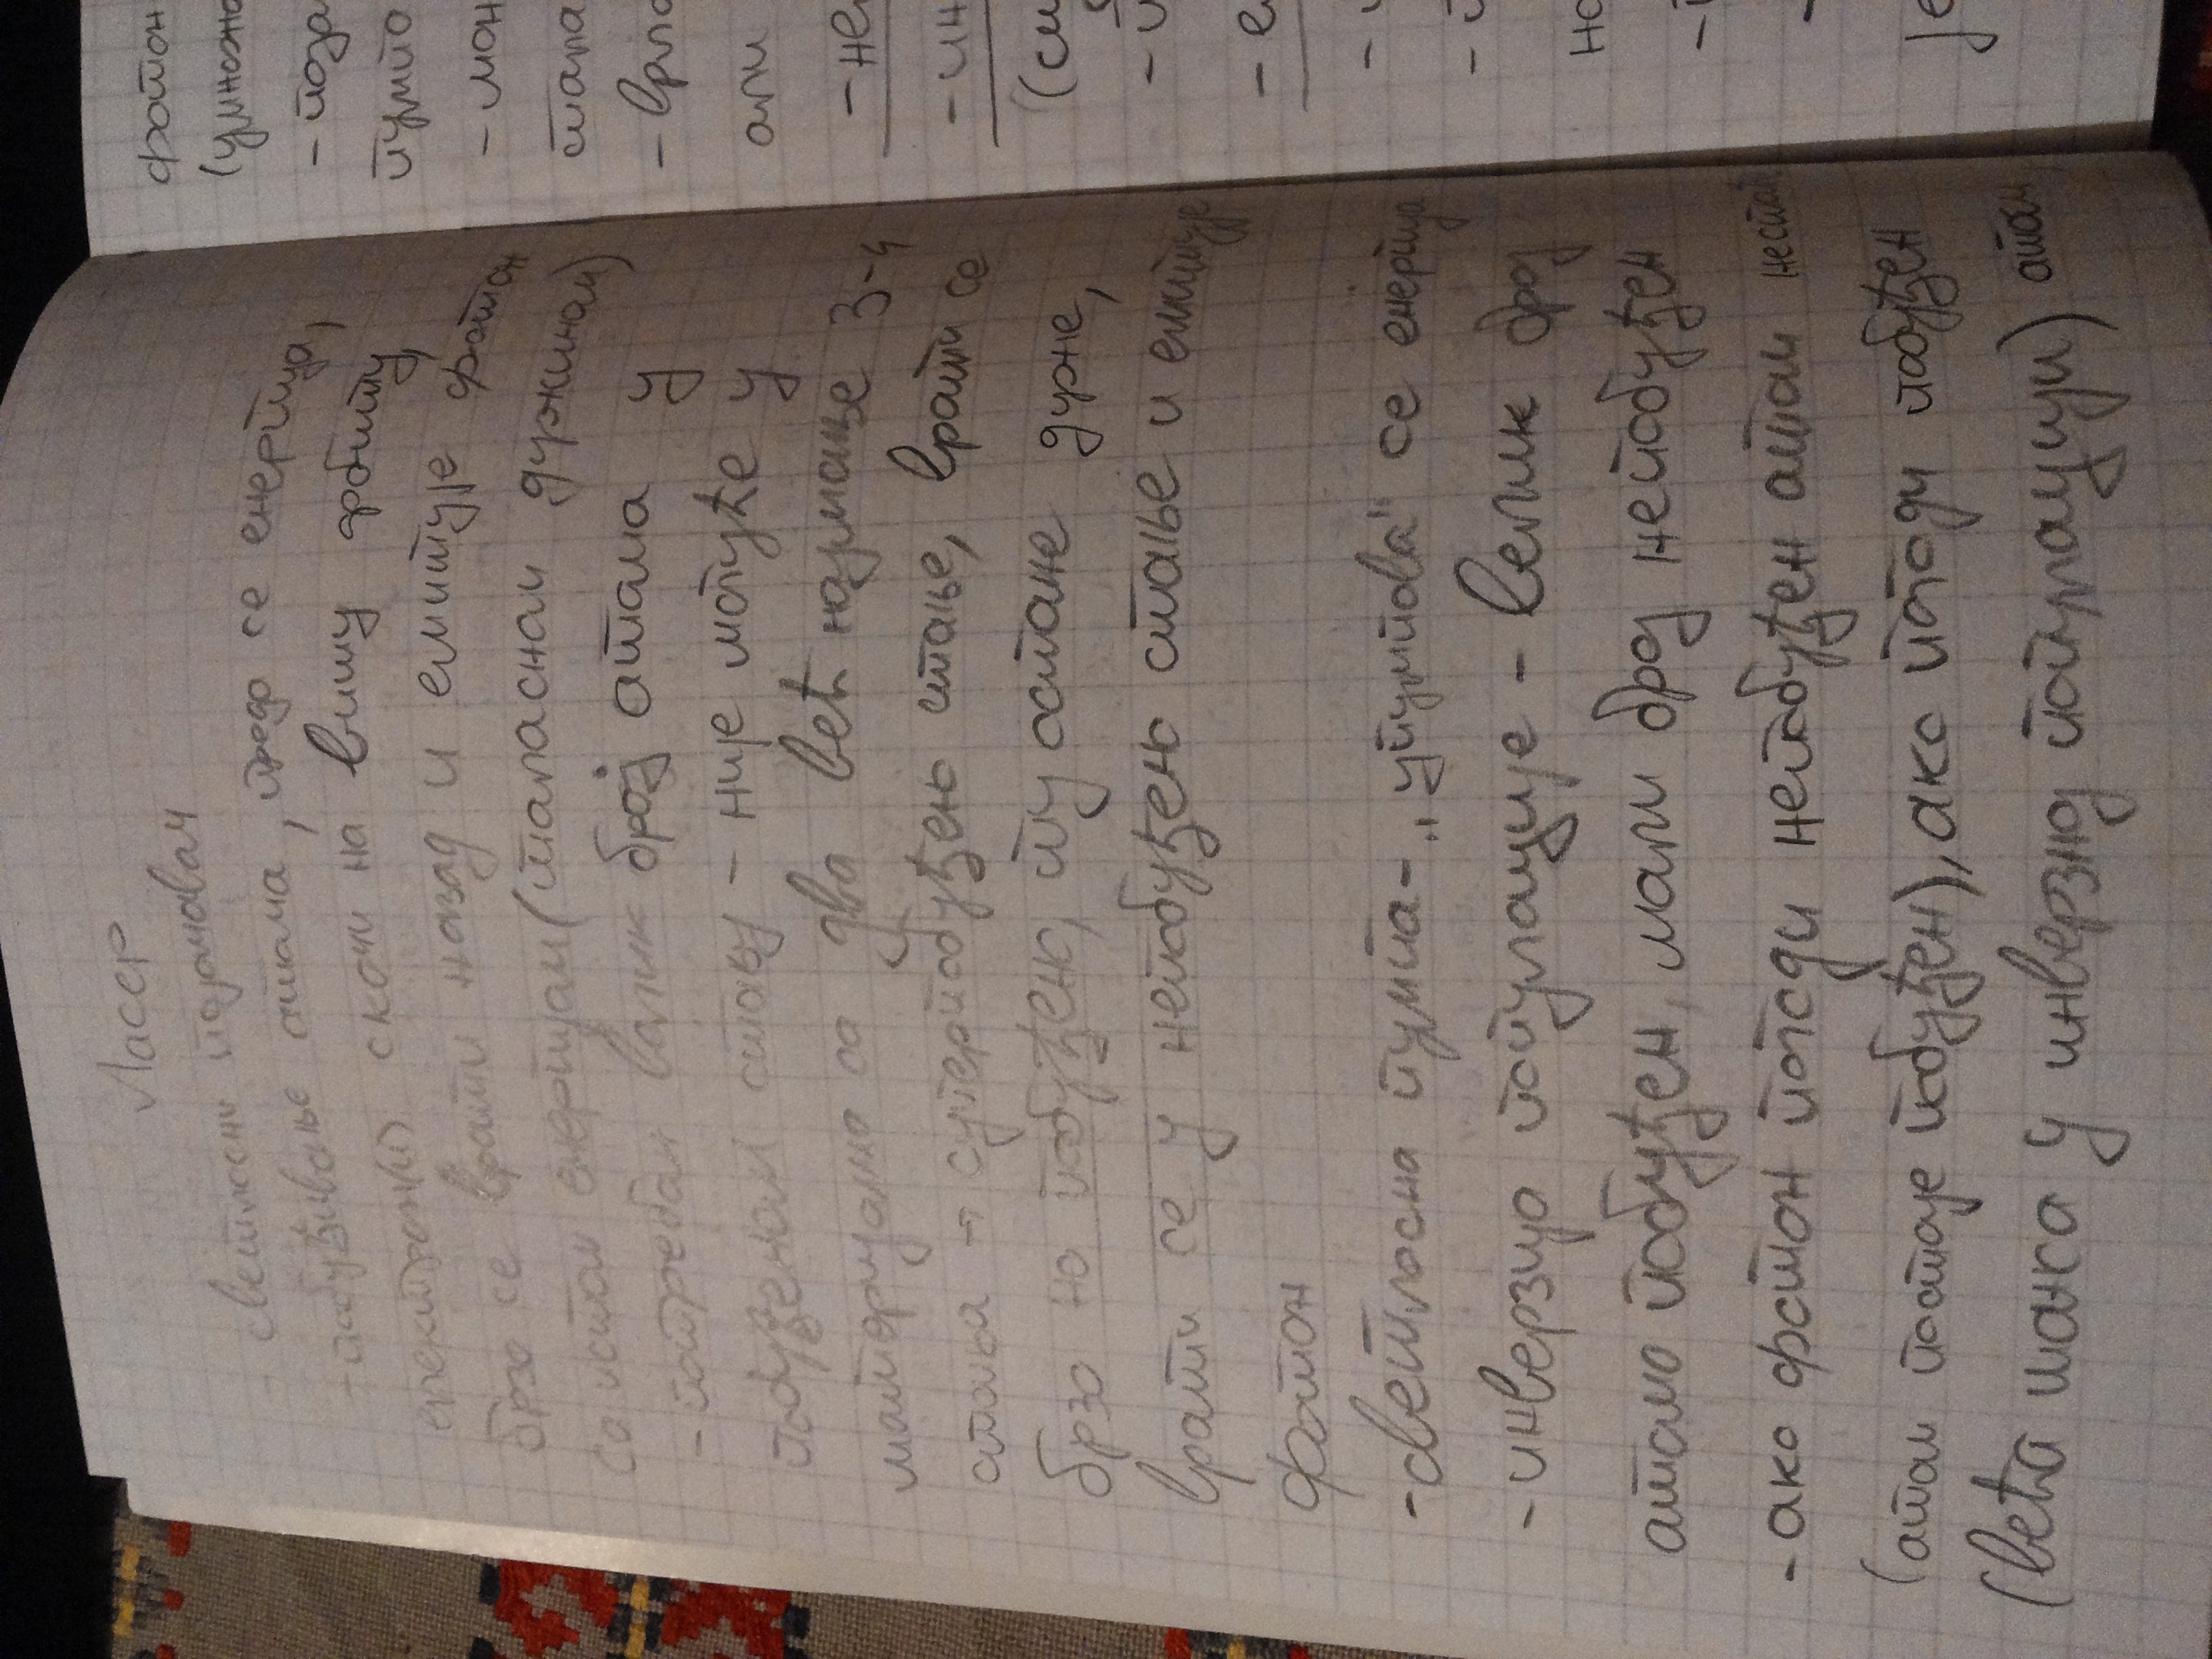 Ласер
- светлосни појачавач
- побуђивање атома, преда се енергија,
електрон(и) скочи на вишу орбиту,
брзо се врати назад и емитује фотон
са истом енергијом (таласном дужином)
- потребан велик број атома у
побуђеном стању - није могуће у
материјалима са два већ најмање 3-4
стања → суперпобуђено стање, врати се
брзо на побуђено, ту остане дуже,
врати се у непобуђено стање и емитује
фотон
- светлосна пумпа - „упумпава" се енергија
- инверзија популације - велик број
атома побуђен, мали број непобуђен
- ако фотон погоди непобуђен атом
(атом постаје побуђен), ако погоди побуђен
(већа шанса у инверзној популацији) атом,
фотон
- поза
пумпа
- мон
тала
- врло
али
- ин